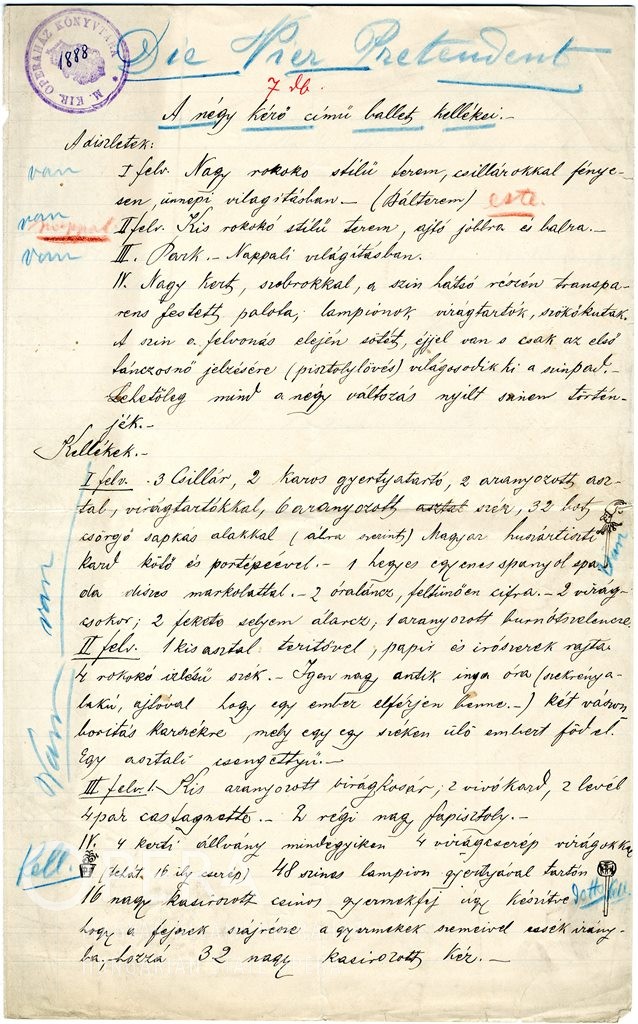 M. KIR. OPERAHÁZ KÖNYVTÁRA
1888
Die Vier Pretendent
7 db.
A négy kérő című ballet kellékei.–
A diszletek:
van I felv. Nagy rokoko stilű terem, csillárokkal fénye-
sen, ünnepi világitásban – (Bálterem) este.
van nappal II felv. Kis rokokó stilű terem, ajtó jobbra és balra.–
van III. Park – Nappali világitásban.
IV. Nagy kert, szobrokkal, a szin hátsó részén transpa-
rens festett palota, lampiónok, virágtartók, szökőkutak.
A szin a felvonás elején sötét, éjjel van s csak az első
tánczosnő jelzésére (pisztolylövés) világosodik ki a szinpad.–
Lehetőleg mind a négy változás nyilt szinen történ-
jék.–
Kellékek.–
I felv. 3 Csillár, 2 karos gyertyatartó, 2 aranyozott asz-
tal, virágtartókkal, 6 aranyozott asztal szék, 32 bot
csörgő sapkás alakkal (ábra szerint) Magyar huszártiszti
kard kötő és portépéevel.– 1 hegyes egyenes spanyol spa-
da diszes markolattal.– 2 óraláncz, feltünően cifra.– 2 virág-
csokor; 2 fekete selyem álarcz; 1 aranyozott burnótszelencze
II felv. 1 kis asztal teritővel, papir és irószerek rajta
4 rokokó izlésű szék.– Igen nagy antik inga óra (szekrény a-
lakú, ajtóval hogy egy ember elférjen benne.–) két vászon
boritás karszékre, mely egy egy széken ülő embert föd el.
Egy asztali csengettyü.–
van
Van
van
III felv. 1. Kis aranyozott virágkosár; 2 vivókard, 2 levél
4 pár castagnette.– 2 régi nagy fapisztoly.–
IV. 4 kerti állvány mindegyiken 4 virágcserép virágokkal
Kell. (tehát 16 ily cserép) 48 szines lampion gyertyával tartón
16 nagy kasirozott csinos gyermekfej úgy készitve
kell.
hogy a fejesek szájrésze a gyermekek szemeivel essék irány-
ba, hozzá 32 nagy kasirozott kéz.–